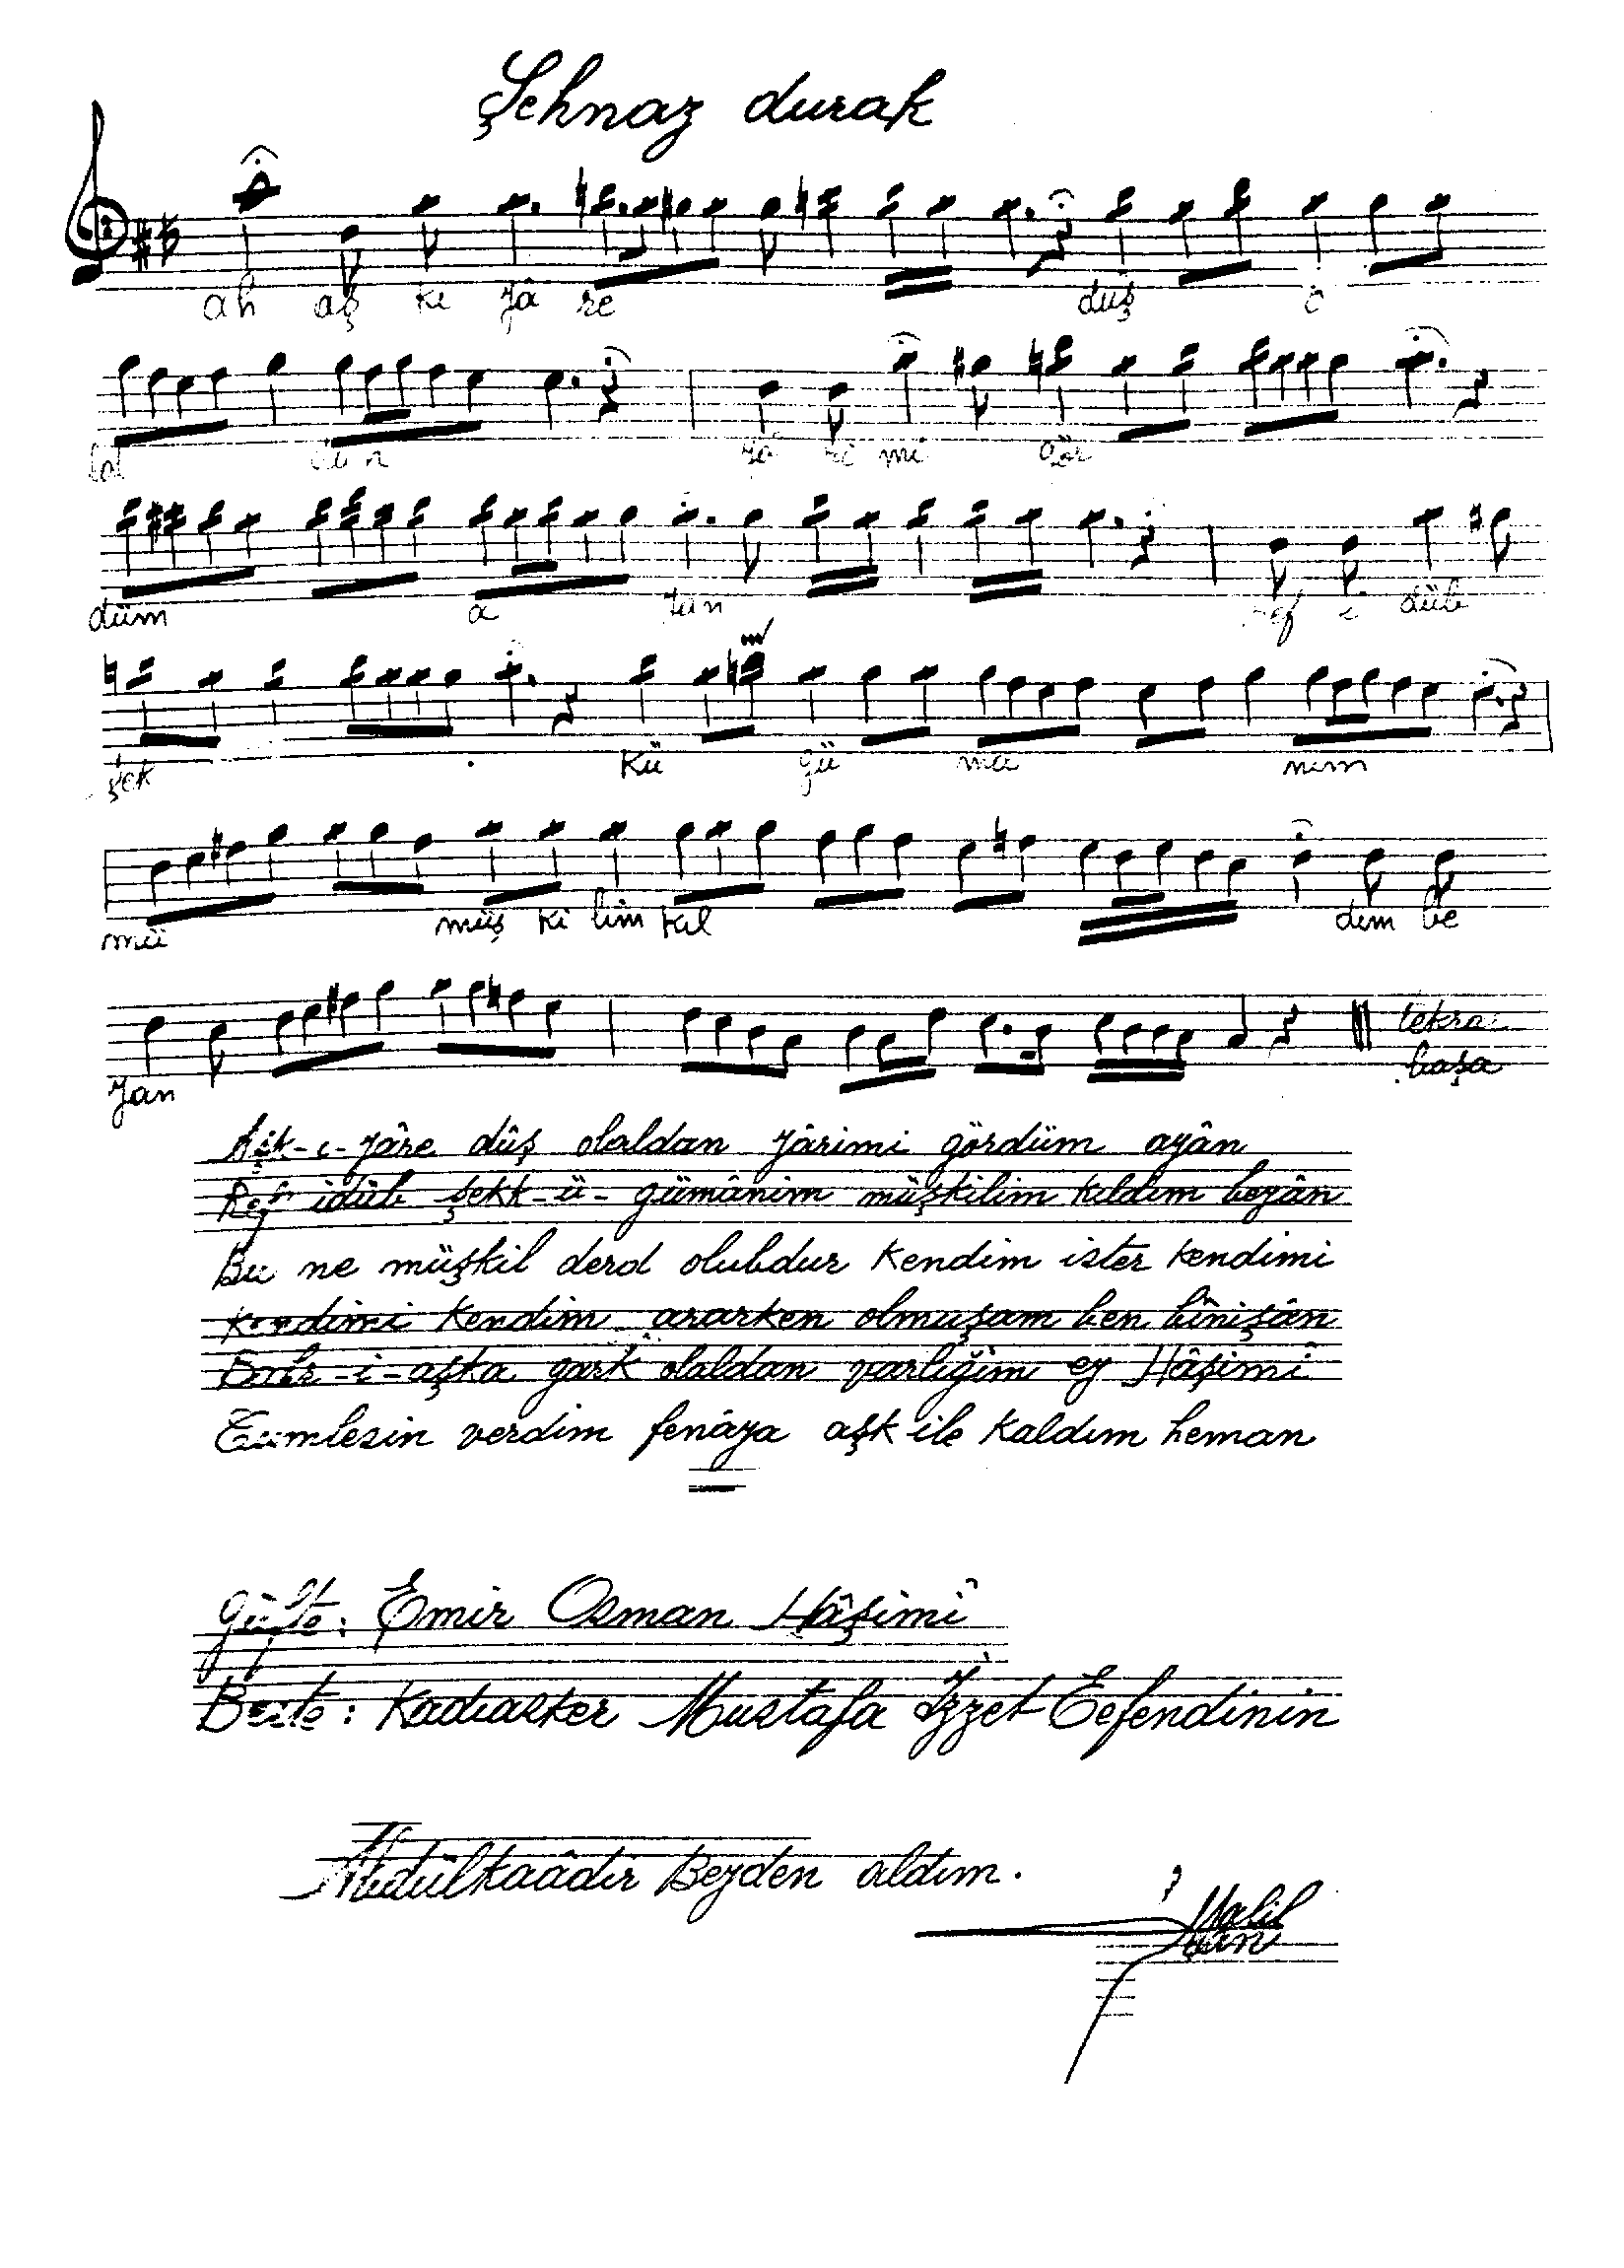 Şehnaz durak
ah aş kı yâ re düş o
lal dan yâ ri mi gör
düm a yan ref i düb
şek kü gü ma nım
mü müş ki lim kıl dım be
yan tekrar
başa
Aşk-ı-yâre dûş olaldan yârimi gördüm ayân
Ref' idüb şekk-ü-gümânım müşkilim kıldım beyân
Bu ne müşkil derd olubdur kendim ister kendimi
kendimi kendim ararken olmuşam ben bînişân
Bahr-i-aşka gark olaldan varlığım ey Hâşimî
Cümlesin verdim fenâya aşk ile kaldım heman
Güfte: Emir Osman Hâşimî
Beste: Kadıasker Mustafa İzzet Eefendinin
Abdülkaâdir Beyden aldım.
Halil
Can